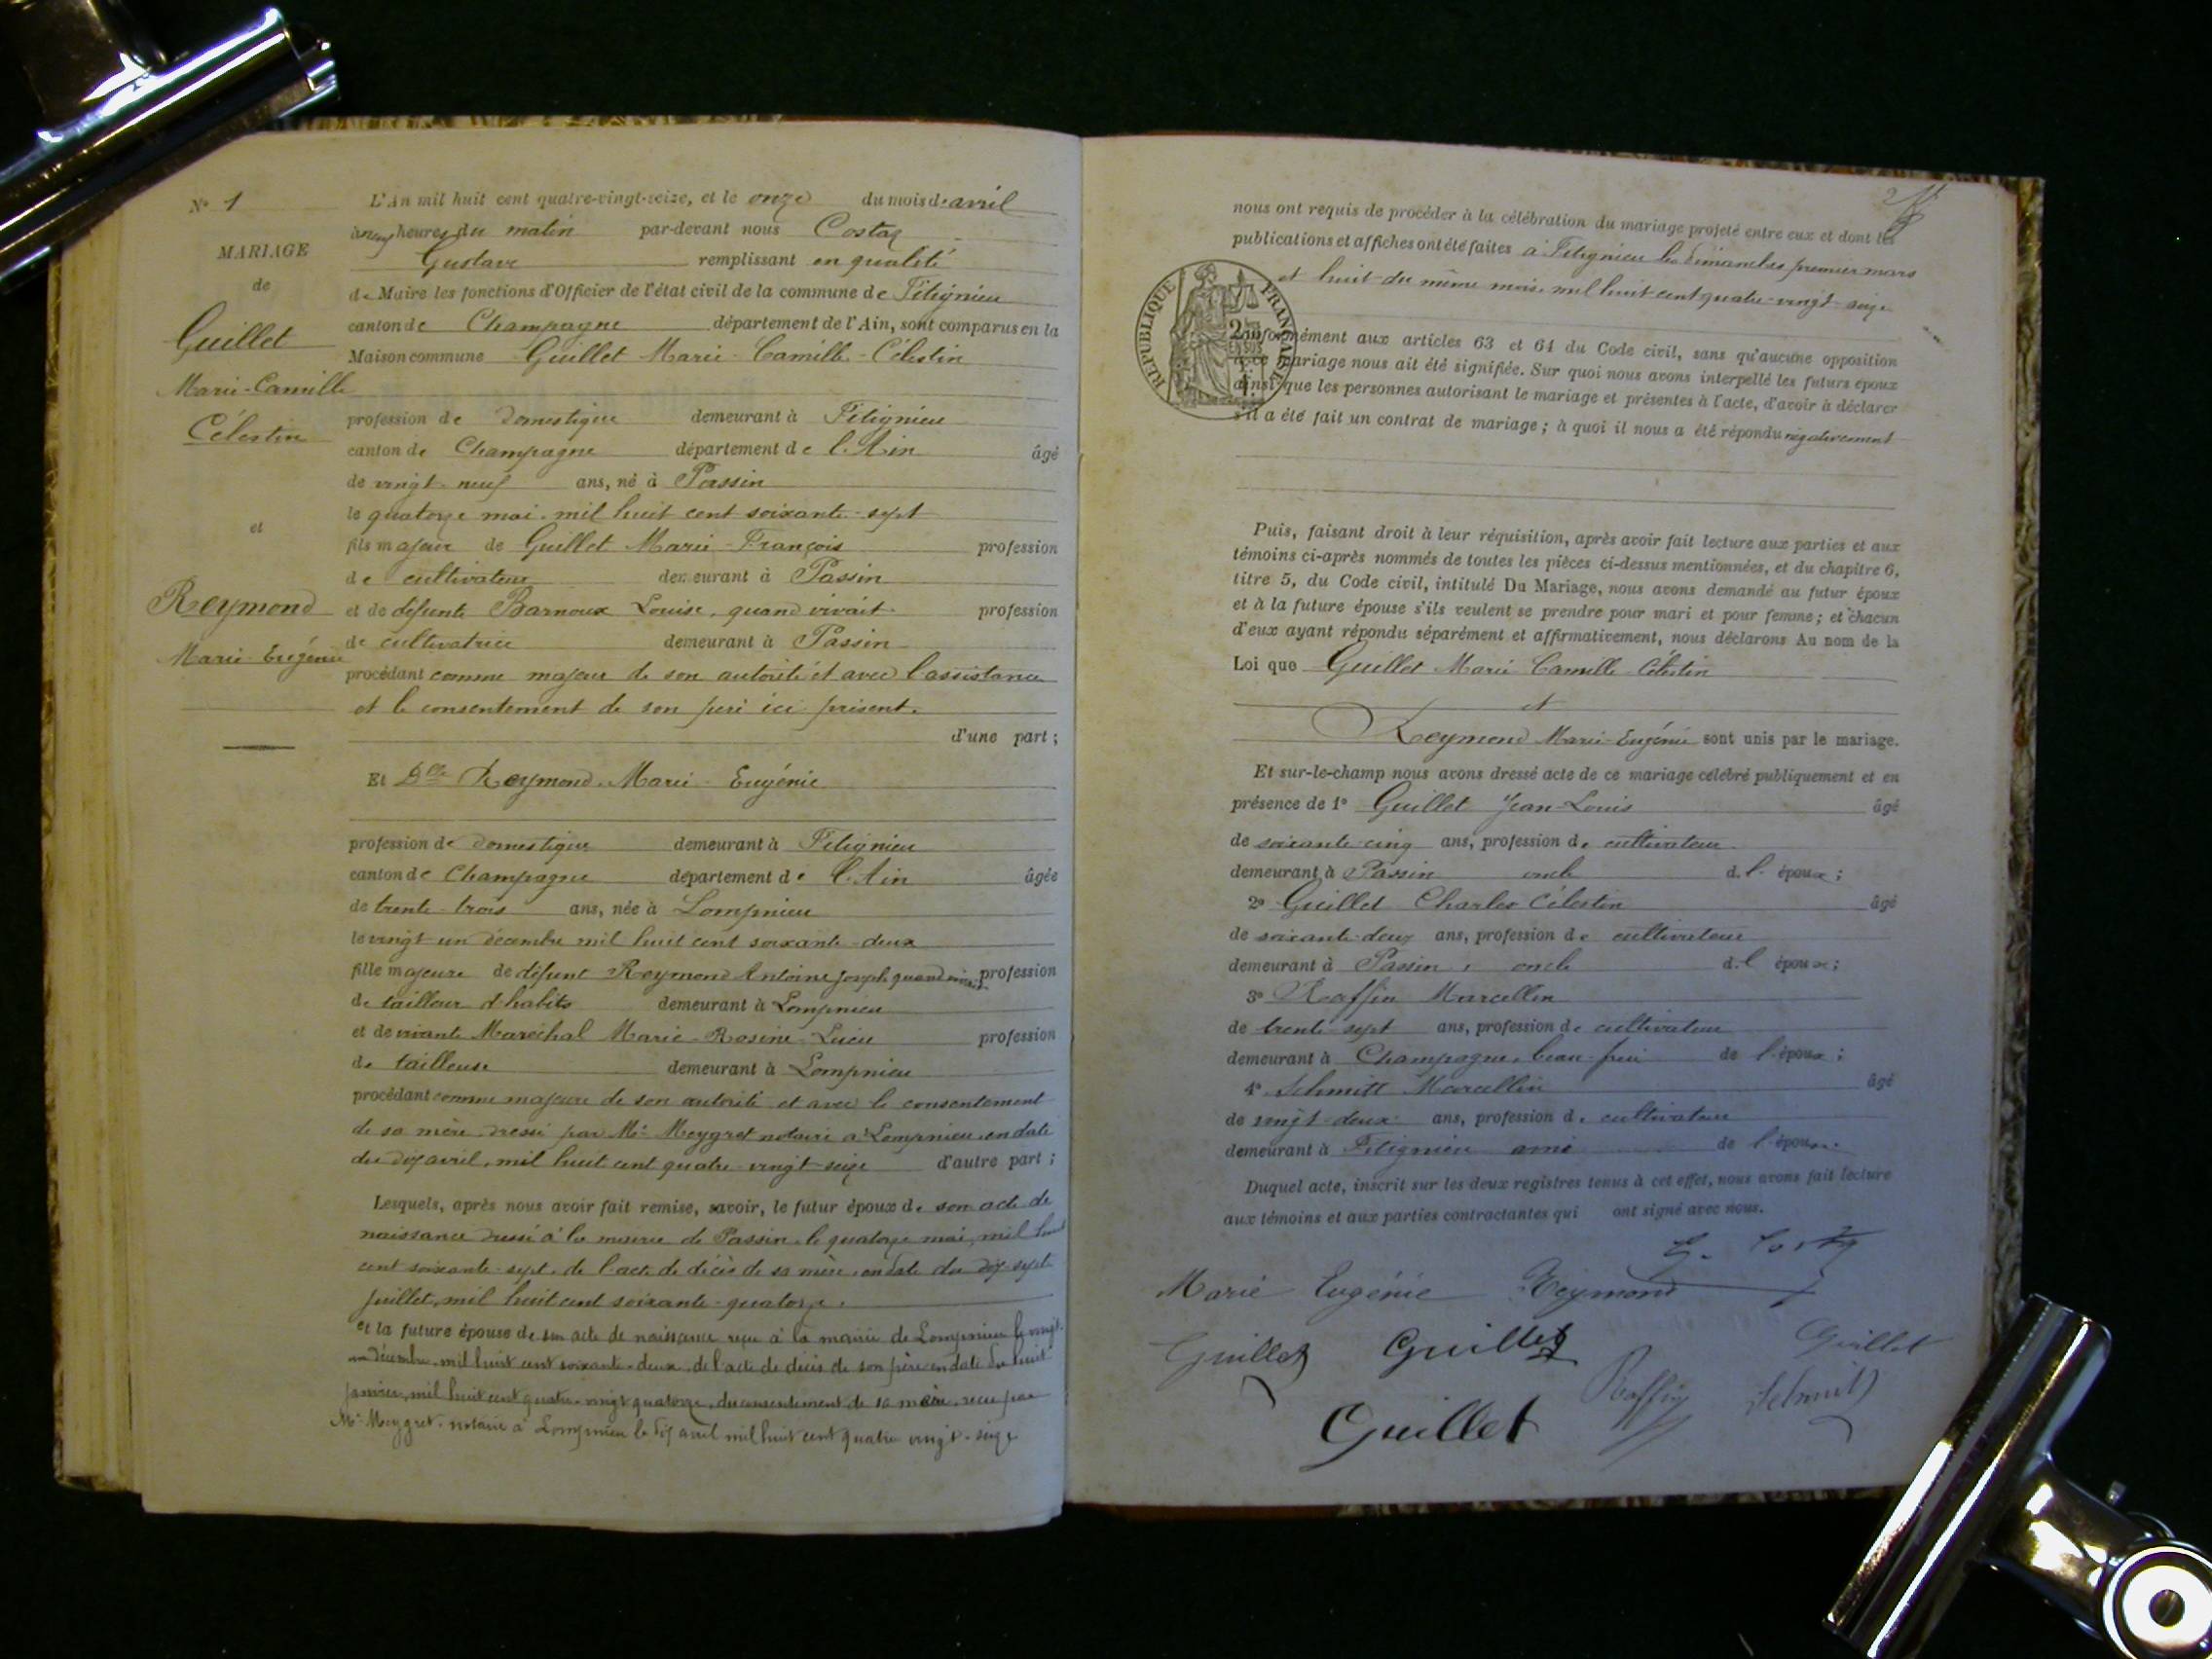 N° 1
MARIAGE
de
Guillet
Marie-Camille
Célestin
et
Reymond
Marie Eugénie
L'An mil huit cent quatre-vingt-seize, et le onze du mois de avril
à neuf heures du matin par-devant nous Costaz
Gustave remplissant en qualité
de Maire les fonctions d'Officier de l'état civil de la commune de Fitignieu
canton de Champagne département de l'Ain, sont comparus en la
Maison commune Guillet Marie-Camille-Célestin
profession de domestique demeurant à Fitignieu
canton de Champagne département de l'Ain âgé
de vingt-neuf ans, né à Passin
le quatorze mai mil huit cent soixante-sept
fils majeur de Guillet Marie-François profession
de cultivateur demeurant à Passin
et de défunte Barnoux Louise, quand vivait profession
de cultivatrice demeurant à Passin
procédant comme majeur de son autorité et avec l'assistance
et le consentement de son père ici présent.
d'une part ;
Et Dlle Reymond Marie-Eugénie
profession de domestique demeurant à Fitignieu
canton de Champagne département de l'Ain âgée
de trente-trois ans, née à Lompnieu
le vingt un décembre mil huit cent soixante-deux
fille majeure de défunt Reymond Antoine Joseph quand vivait profession
de tailleur d'habits demeurant à Lompnieu
et de vivante Maréchal Marie-Rosine-Lucie profession
de tailleuse demeurant à Lompnieu
procédant comme majeure de son autorité et avec le consentement
de sa mère dressé par Me Meygret notaire à Lompnieu en date
du dix avril, mil huit cent quatre-vingt-seize d'autre part ;
Lesquels, après nous avoir fait remise, savoir, le futur époux de son acte de
naissance dressé à la mairie de Passin le quatorze mai, mil huit
cent soixante-sept, de l'acte de décès de sa mère en date du dix-sept
juillet, mil huit cent soixante-quatorze.
et la future épouse de son acte de naissance reçu à la mairie de Lompnieu le vingt-
un décembre mil huit cent soixante-deux, de l'acte de décès de son père en date du huit
janvier, mil huit cent quatre-vingt quatorze, du consentement de sa mère reçu par
Me Meygret, notaire à Lompnieu le dix avril mil huit cent quatre vingt-seize
2
nous ont requis de procéder à la célébration du mariage projeté entre eux et dont les
publications et affiches ont été faites à Fitignieu les dimanches premier mars
et huit du même mois mil huit cent quatre-vingt-seize
REPUBLIQUE FRANÇAISE
conformément aux articles 63 et 64 du Code civil, sans qu'aucune opposition
à ce mariage nous ait été signifiée. Sur quoi nous avons interpellé les futurs époux
ainsi que les personnes autorisant le mariage et présentes à l'acte, d'avoir à déclarer
s'il a été fait un contrat de mariage ; à quoi il nous a été répondu négativement
Puis, faisant droit à leur réquisition, après avoir fait lecture aux parties et aux
témoins ci-après nommés de toutes les pièces ci-dessus mentionnées, et du chapitre 6,
titre 5, du Code civil, intitulé Du Mariage, nous avons demandé au futur époux
et à la future épouse s'ils veulent se prendre pour mari et pour femme ; et chacun
d'eux ayant répondu séparément et affirmativement, nous déclarons Au nom de la
Loi que Guillet Marie Camille Célestin
et
Reymond Marie-Eugénie sont unis par le mariage.
Et sur-le-champ nous avons dressé acte de ce mariage célébré publiquement et en
présence de 1° Guillet Jean-Louis âgé
de soixante-cinq ans, profession de cultivateur
demeurant à Passin oncle de l'époux ;
2° Guillet Charles Célestin âgé
de soixante-deux ans, profession de cultivateur
demeurant à Passin, oncle de l'époux ;
3° Raffin Marcellin
de trente-sept ans, profession de cultivateur
demeurant à Champagne, beau-frère de l'époux ;
4° Schmitt Marcellin âgé
de vingt-deux ans, profession de cultivateur
demeurant à Fitignieu ami de l'époux.
Duquel acte, inscrit sur les deux registres tenus à cet effet, nous avons fait lecture
aux témoins et aux parties contractantes qui ont signé avec nous.
G. Costaz
Marie Eugénie Reymond
Guillet Guillet Guillet
Raffin Schmitt
Guillet